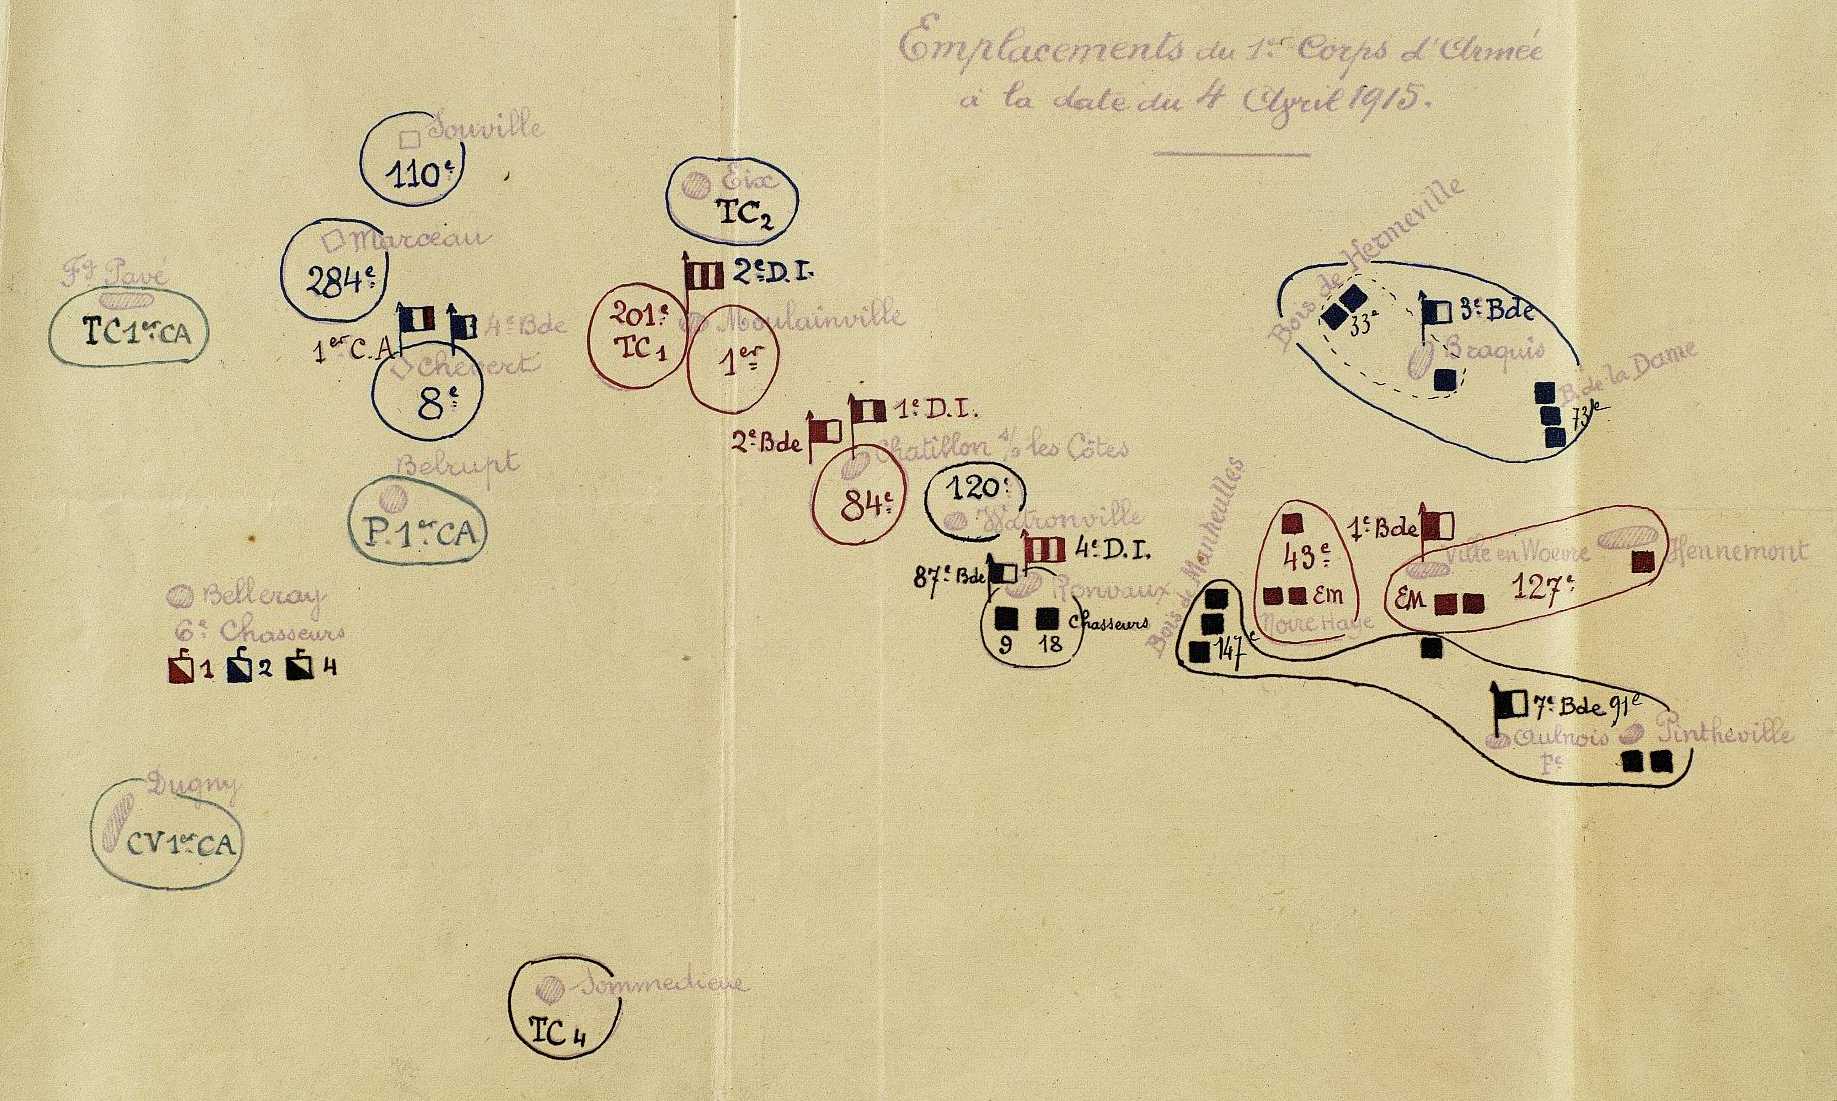 Emplacements du 1er Corps d'Armée
à la date du 4 Avril 1915.
Souville
110e
Eix
TC2
Marceau
284e
Ft Pavé
TC 1er CA
1er C.A
4e Bde
Chevert
8e
2e D.I.
201e
TC1
Moulainville
1er
Bois de Hermeville
33e
3e Bde
Braquis
B. de la Dame
73e
1e D.I.
2e Bde
Chatillon s/s les Côtes
84e
Belrupt
P. 1er CA
120e
Watronville
4e D.I.
87e Bde
Ronvaux
Chasseurs
9 18
Bois de Manheulles
147e
43e
EM
Noire Haye
1e Bde
Ville en Woevre
Hennemont
EM
127e
Belleray
6e Chasseurs
1 2 4
7e Bde 91e
Aulnois
Fe
Pintheville
Dugny
CV 1er CA
Sommedieue
TC 4